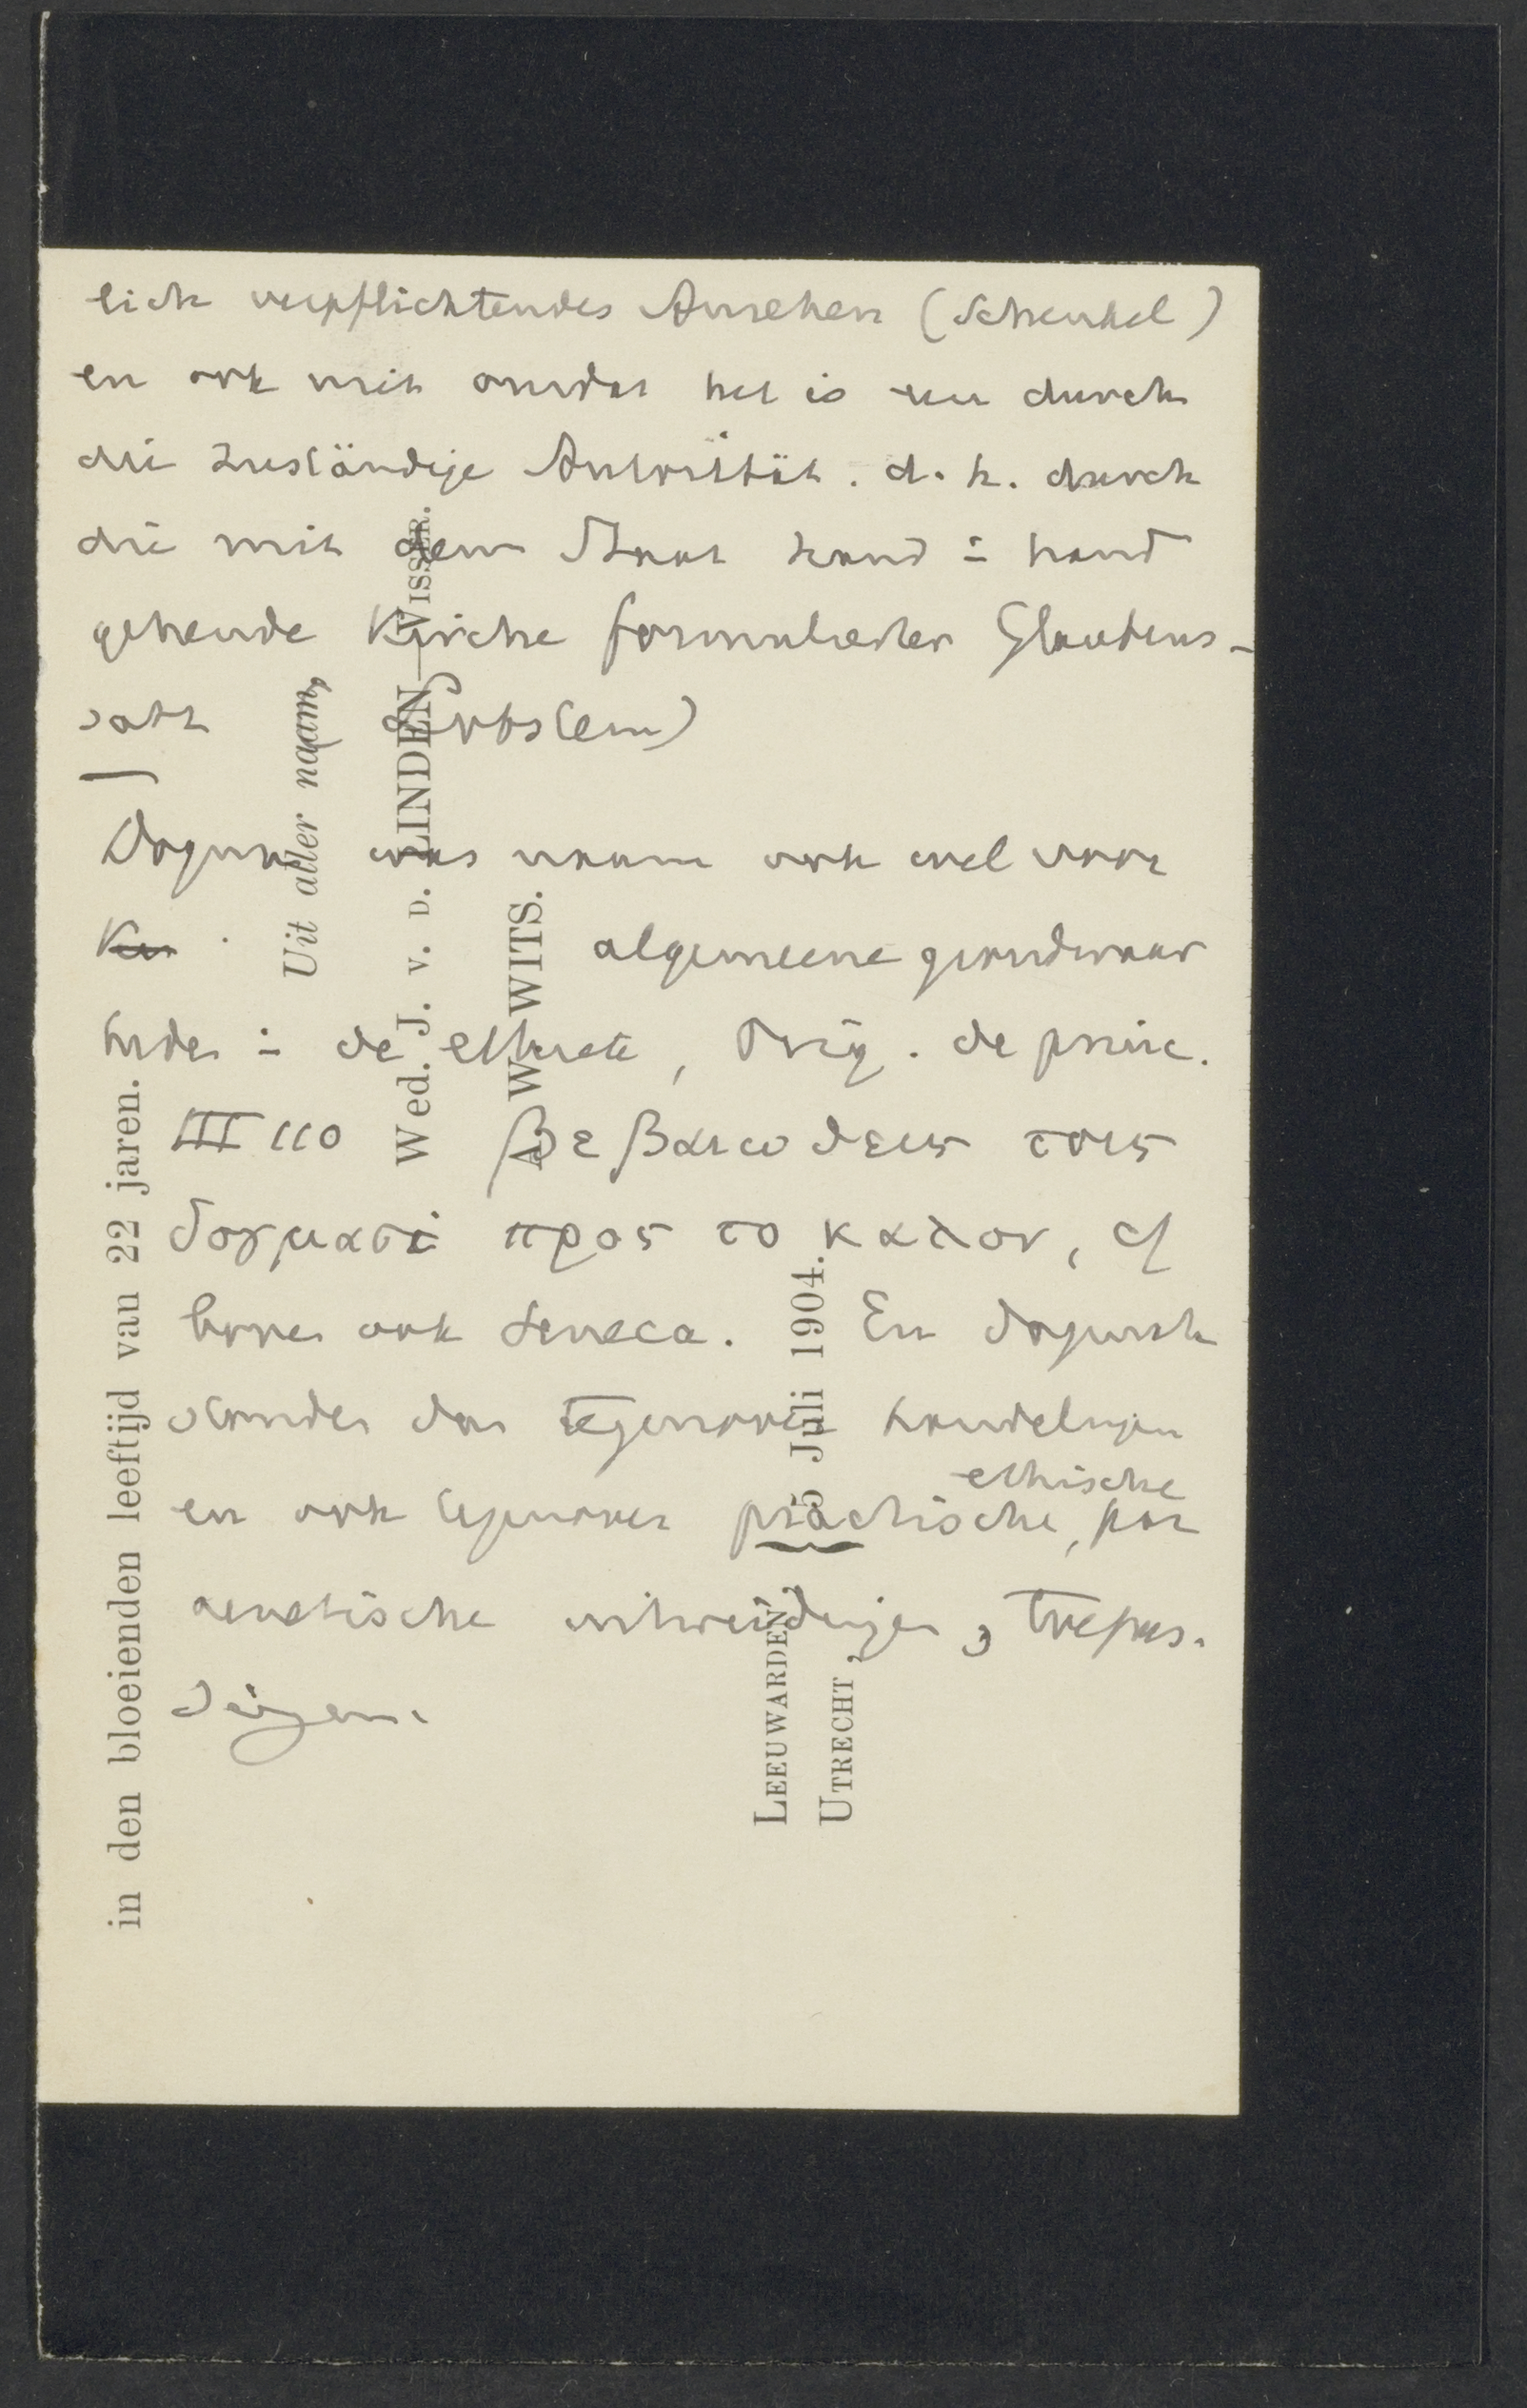 lich verpflichtendes Ansehen (Schenkel)
en ook niet omdat het is een durch
die zuständige Autorität. d. h. durch
die mit dem Staat hand in hand
gehende Kirche formulierter Glaubens-
satz (Lobstein)
Dogma was naam ook wel voor
algemeene grondwaar
heden in de ethiek, Orig. de princ.
III 110 βεβαιωθεις τοις
δογμασι προς το καλον, cf
boven ook Seneca. En dogmat
stonden dan tegenover handelingen
en ook tegenover practische, ethische par
aenetische uitweidingen, toepas.
singen.
in den bloeienden leeftijd van 22 jaren.
Uit aller naam,
Wed. J. v. D. LINDEN—VISSER.
A. W. WITS.
LEEUWARDEN, 5 Juli 1904.
UTRECHT,